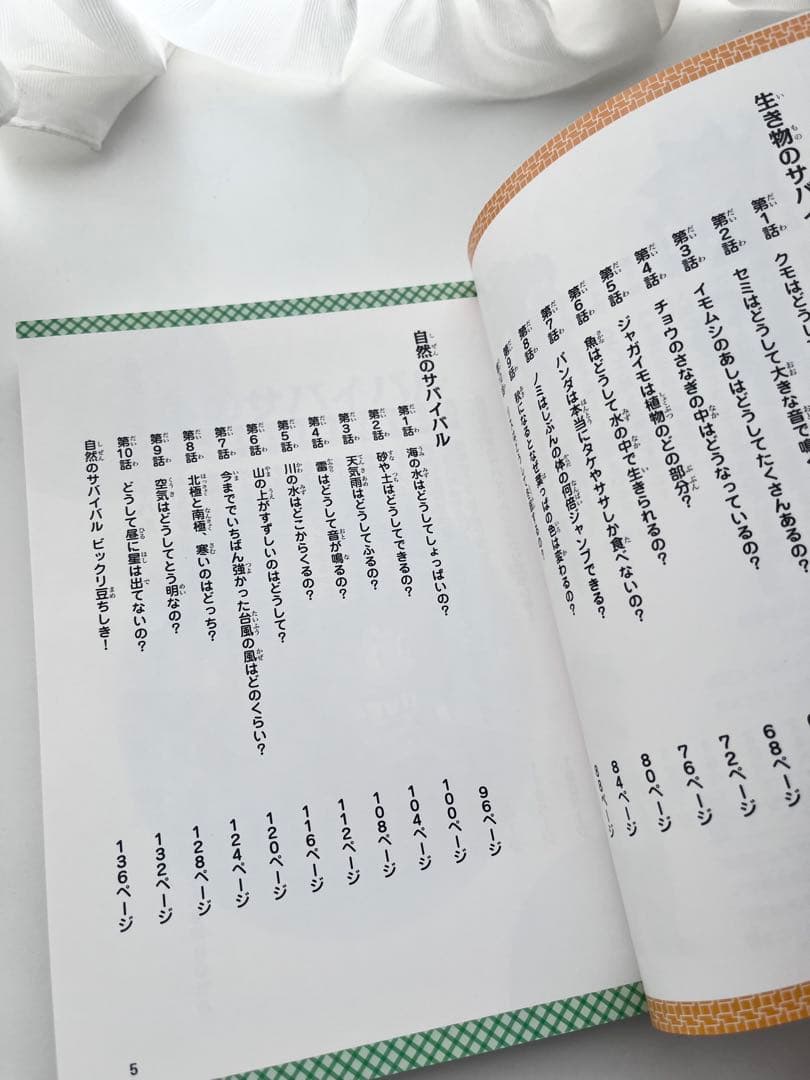 生き物のサバ
第1話 クモはどう
第2話 セミはどうして大きな音で鳴
第3話 イモムシのあしはどうしてたくさんあるの？
第4話 チョウのさなぎの中はどうなっているの？
第5話 ジャガイモは植物のどの部分？
第6話 魚はどうして水の中で生きられるの？
第7話 パンダは本当にタケやササしか食べないの？
第8話 ノミはじぶんの体の何倍ジャンプできる？
第9話 秋になるとなぜ葉っぱの色は変わるの？
68ページ
72ページ
76ページ
80ページ
84ページ
88ページ
自然のサバイバル
第1話 海の水はどうしてしょっぱいの？ 96ページ
第2話 砂や土はどうしてできるの？ 100ページ
第3話 天気雨はどうしてふるの？ 104ページ
第4話 雷はどうして音が鳴るの？ 108ページ
第5話 川の水はどこからくるの？ 112ページ
第6話 山の上がすずしいのはどうして？ 116ページ
第7話 今まででいちばん強かった台風の風はどのくらい？ 120ページ
第8話 北極と南極、寒いのはどっち？ 124ページ
第9話 空気はどうしてとう明なの？ 128ページ
第10話 どうして昼に星は出てないの？ 132ページ
自然のサバイバル ビックリ豆ちしき！ 136ページ
5